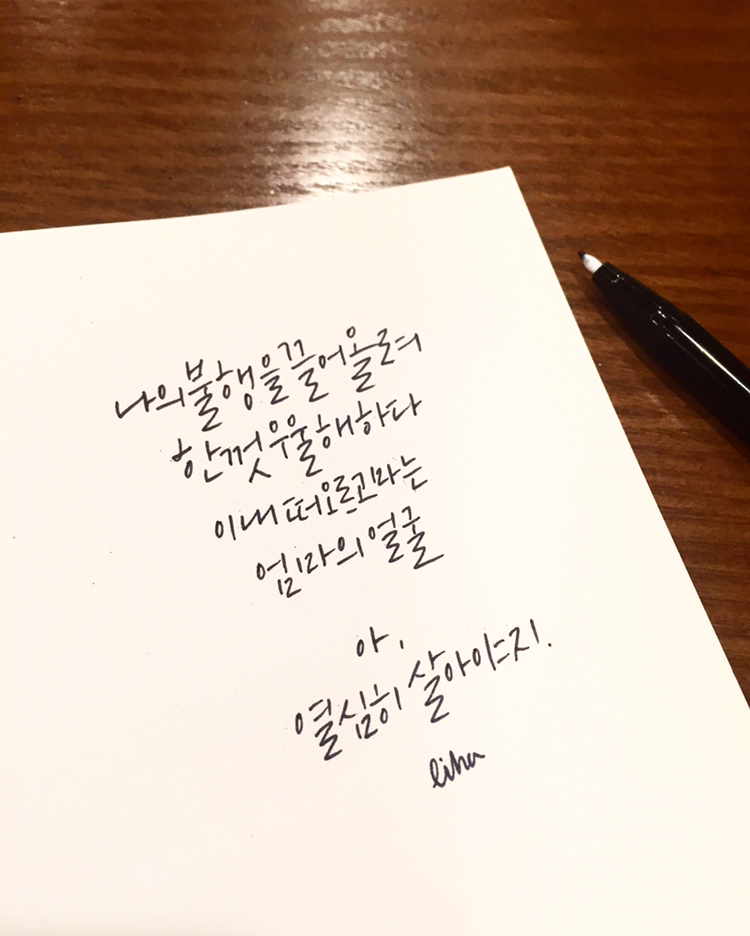 나의 불행을 끌어올려
한껏 우울해하다
이내 떠오르고 마는
엄마의 얼굴
아,
열심히 살아야지.
liha